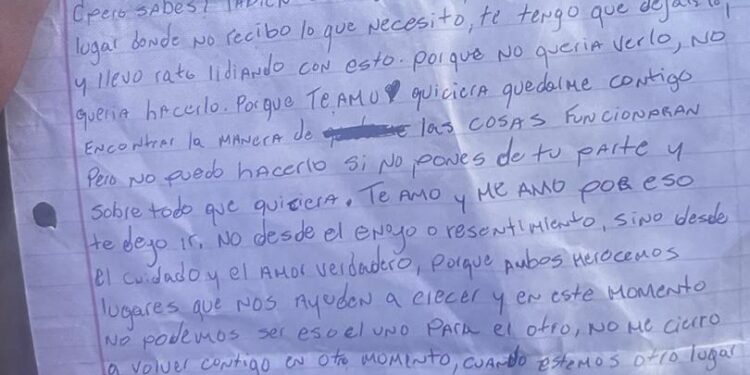 (pero sabes?
lugar donde no recibo lo que necesito, te tengo que dejar
y llevo rato lidiando con esto. porque no queria verlo, no
queria hacerlo. Porque TE AMO ♥ quiciera quedalme contigo
encontrar la manera de las cosas funcionaran
Pero no puedo hacerlo si no pones de tu parte y
sobre todo que quiciera. Te amo y me amo por eso
te dejo ir. no desde el enojo o resentimiento, sino desde
el cuidado y el amor verdadero, porque ambos merocemos
lugares que nos ayuden a crecer y en este momento
no podemos ser eso el uno para el otro, no me cierro
a volver contigo en otro momento, cuando estemos otro lugar